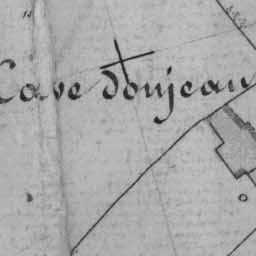 Cave donjean